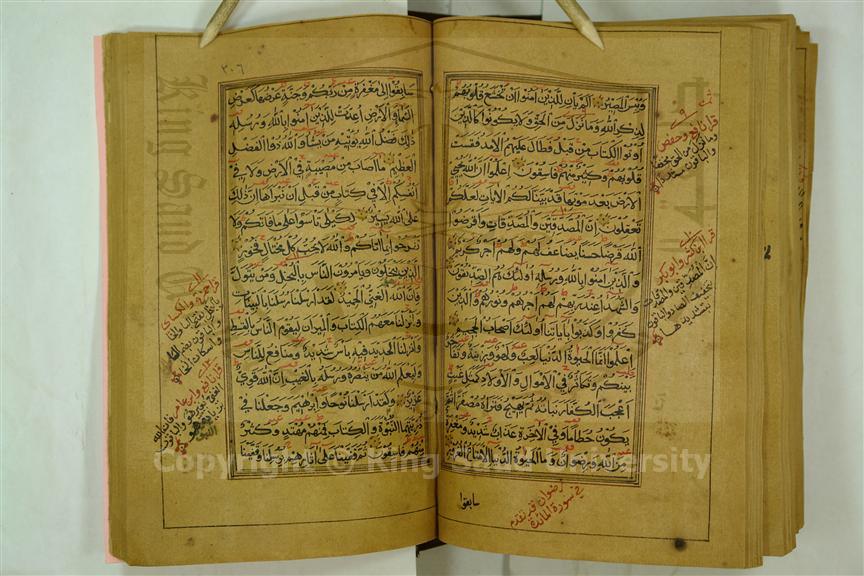 وبئس المصير الم يان للذين آمنوا ان تخشع قلوبهم
لذكر الله وما نزل من الحق ولا يكونوا كالذين
اوتوا الكتاب من قبل فطال عليهم الامد فقست
قلوبهم وكثير منهم فاسقون اعلموا ان الله يحي
الارض بعد موتها قد بينا لكم الايات لعلكم
تعقلون ان المصدقين والمصدقات واقرضوا
الله قرضا حسنا يضاعف لهم ولهم اجر كريم
والذين امنوا بالله ورسله اولئك هم الصديقون
والشهداء عند ربهم لهم اجرهم ونورهم والذين
كفروا وكذبوا باياتنا اولئك اصحاب الجحيم
اعلموا انما الحيوة الدنيا لعب ولهو وزينة وتفاخر
بينكم وتكاثر في الاموال والاولاد كمثل غيث
اعجب الكفار نباته ثم يهيج فتراه مصفرا ثم
يكون حطاما وفي الاخرة عذاب شديد ومغفرة
من الله ورضوان وما الحيوة الدنيا الا متاع الغرور
سابقوا
رضوان قد تقدم
في سورة المائدة
قرا نافع وحفص
٣٠٦
سابقوا الى مغفرة من ربكم وجنة عرضها كعرض
السماء والارض اعدت للذين امنوا بالله ورسله
ذلك فضل الله يؤتيه من يشاء والله ذو الفضل
العظيم ما اصاب من مصيبة في الارض ولا في
انفسكم الا في كتاب من قبل ان نبراها ان ذلك
على الله يسير لكيلا تاسوا على ما فاتكم ولا
تفرحوا بما اتاكم والله لا يحب كل مختال فخور
الذين يبخلون ويامرون الناس بالبخل ومن يتول
فان الله الغني الحميد لقد ارسلنا رسلنا بالبينات
وانزلنا معهم الكتاب والميزان ليقوم الناس بالقسط
وانزلنا الحديد فيه باس شديد ومنافع للناس
وليعلم الله من ينصره ورسله بالغيب ان الله قوي
عزيز ولقد ارسلنا نوحا وابرهيم وجعلنا في
ذريتهما النبوة والكتاب فمنهم مهتد وكثير
منهم فاسقون ثم قفينا على اثارهم برسلنا وقفينا
King Saud
Copyright © King Saud University